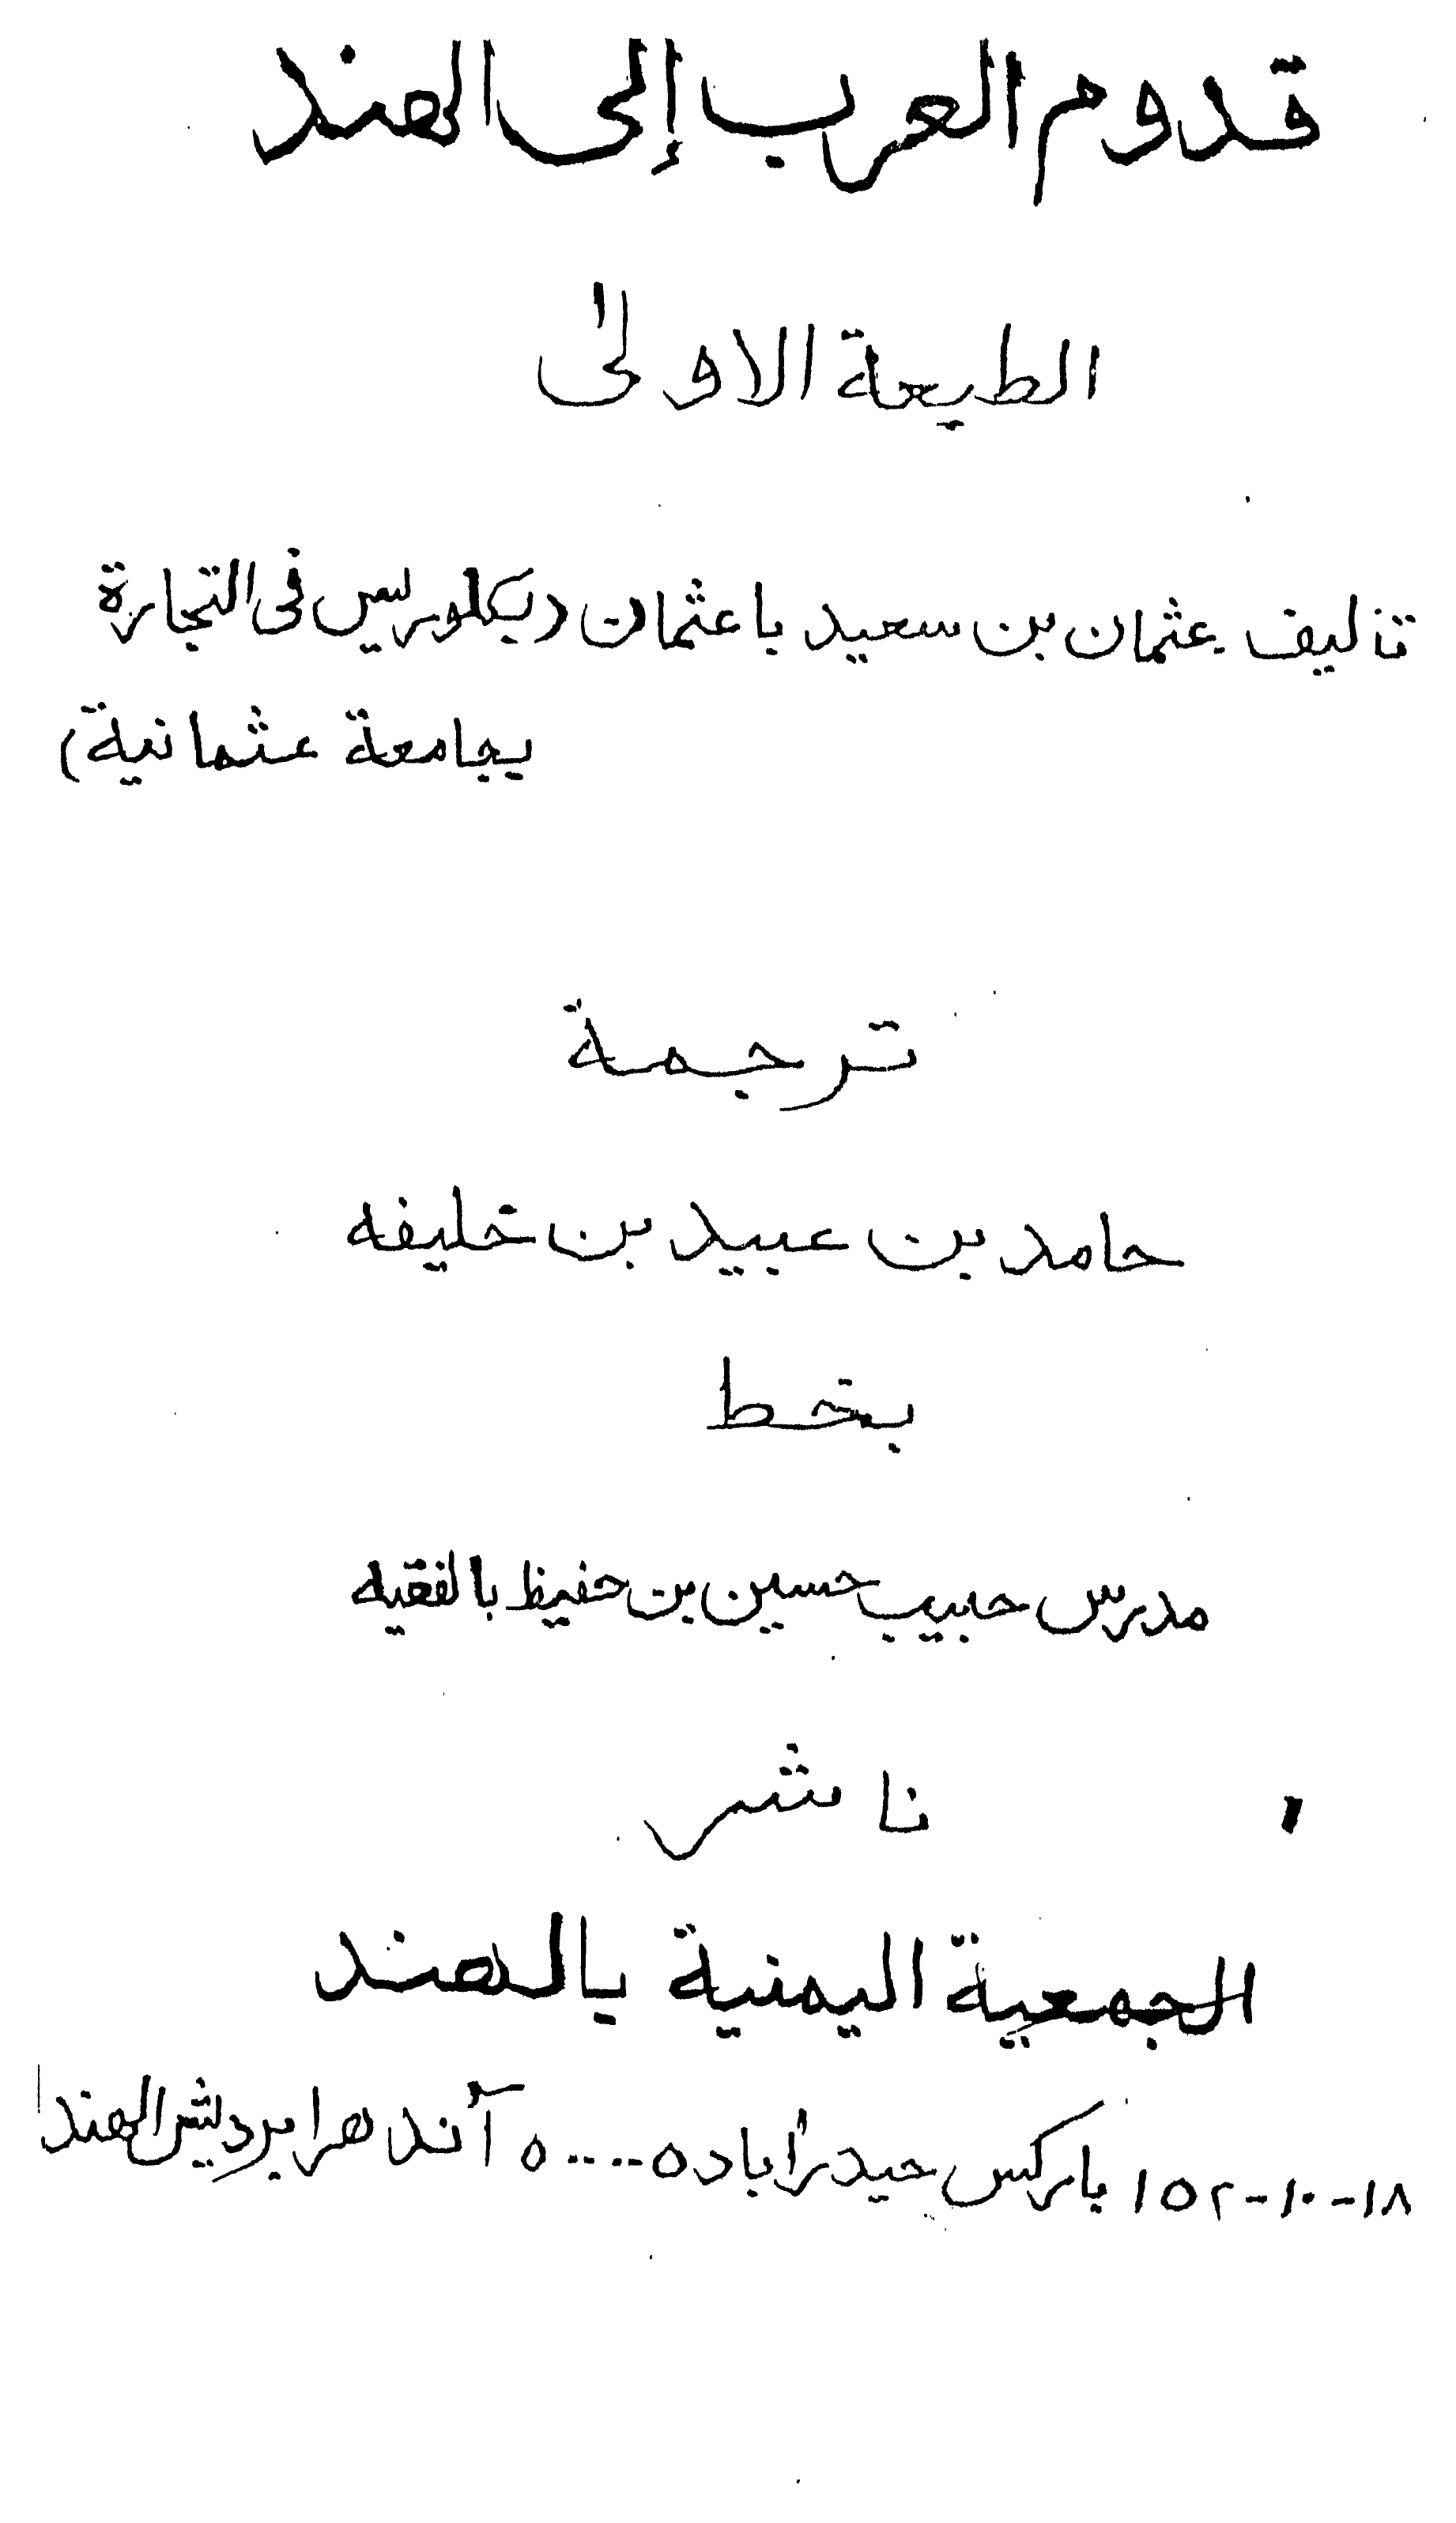 قدوم العرب إلى الهند
الطبعة الاولى
تأليف عثمان بن سعيد باعثمان (بكلوريس في التجارة
بجامعة عثمانية)
ترجمة
حامد بن عبيد بن خليفه
بخط
مدرس حبيب حسين بن حفيظ بالفقيه
ناشر
الجمعية اليمنية بالهند
١٨-١٠-١٥٢ باركس حيدرآباد ٥٠٠٠٠٥ آندهرا برديش الهند